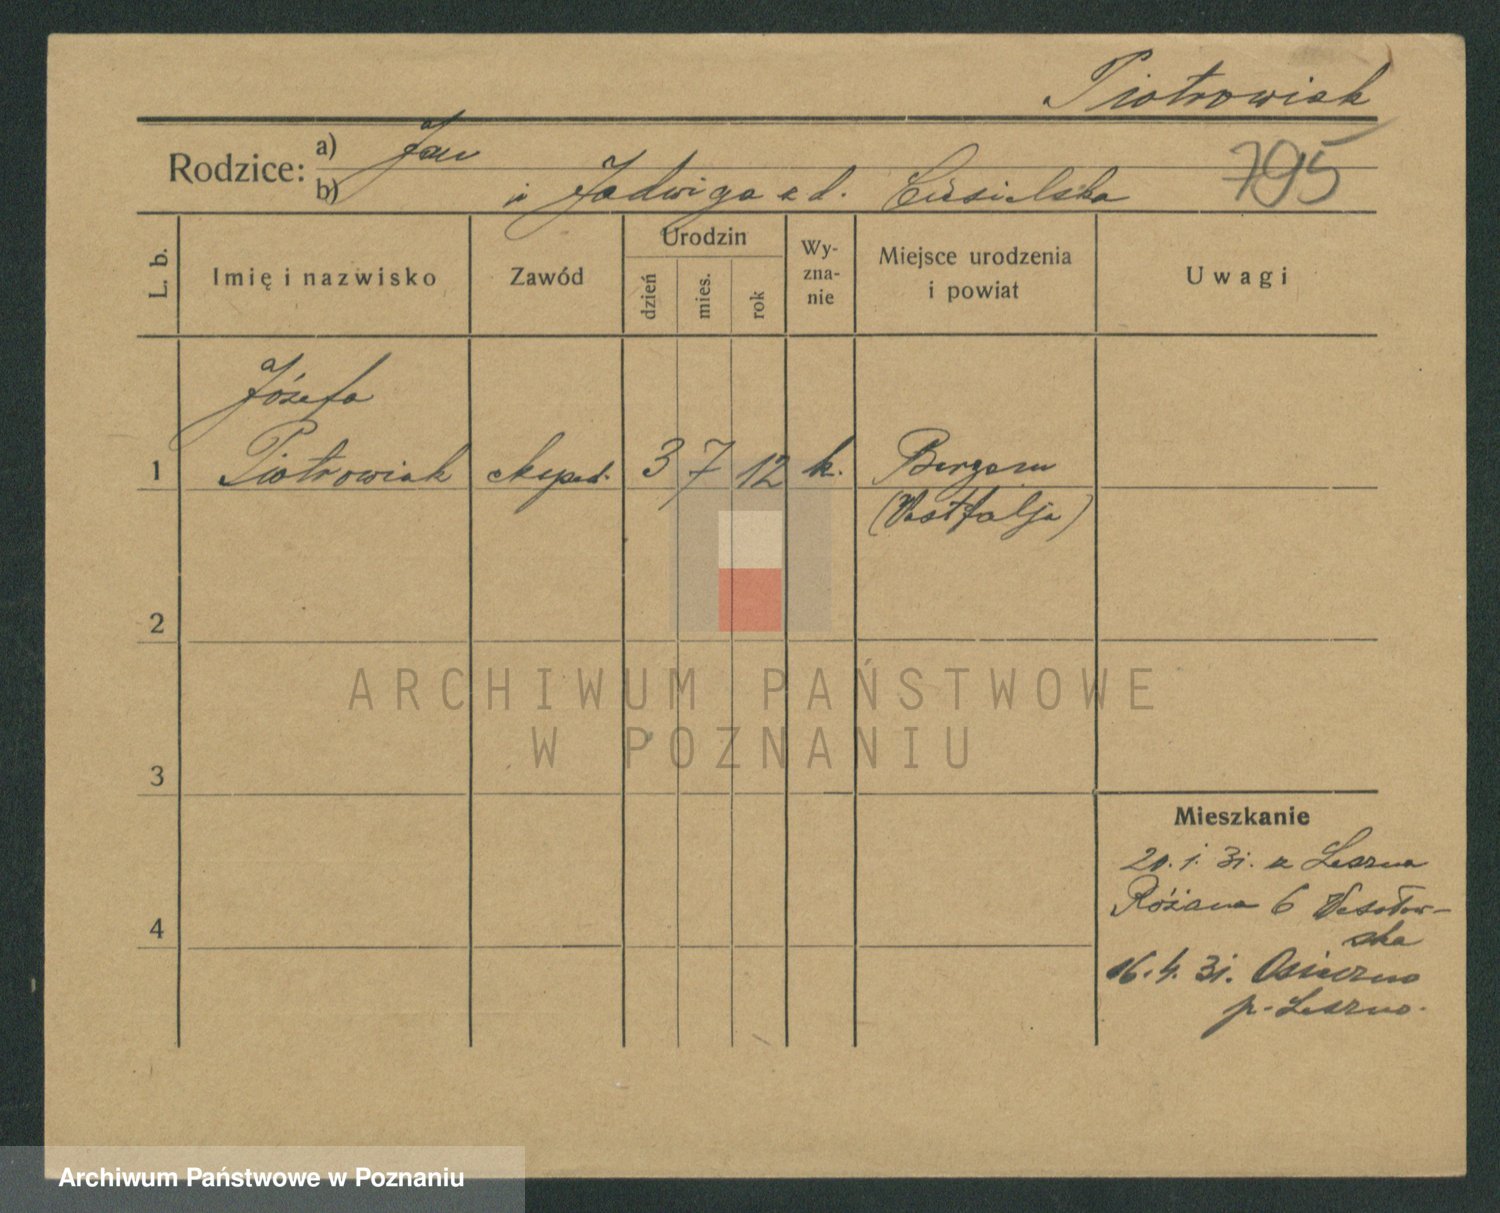 Piotrowiak
795
Rodzice:
a) Jan
b) i Jadwiga z d. Ciesielska
L. b.
Imię i nazwisko
Zawód
Urodzin
dzień
mies.
rok
Wy-
zna-
nie
Miejsce urodzenia
i powiat
Uwagi
Józefa
1 Piotrowiak 3 7 12 k.
(Westfalja)
2
3
4
Mieszkanie
20.1.31. z Leszna
Różana 6
ska
16.4.31. Osieczno
p. Leszno.
ARCHIWUM PAŃSTWOWE
W POZNANIU
Archiwum Państwowe w Poznaniu